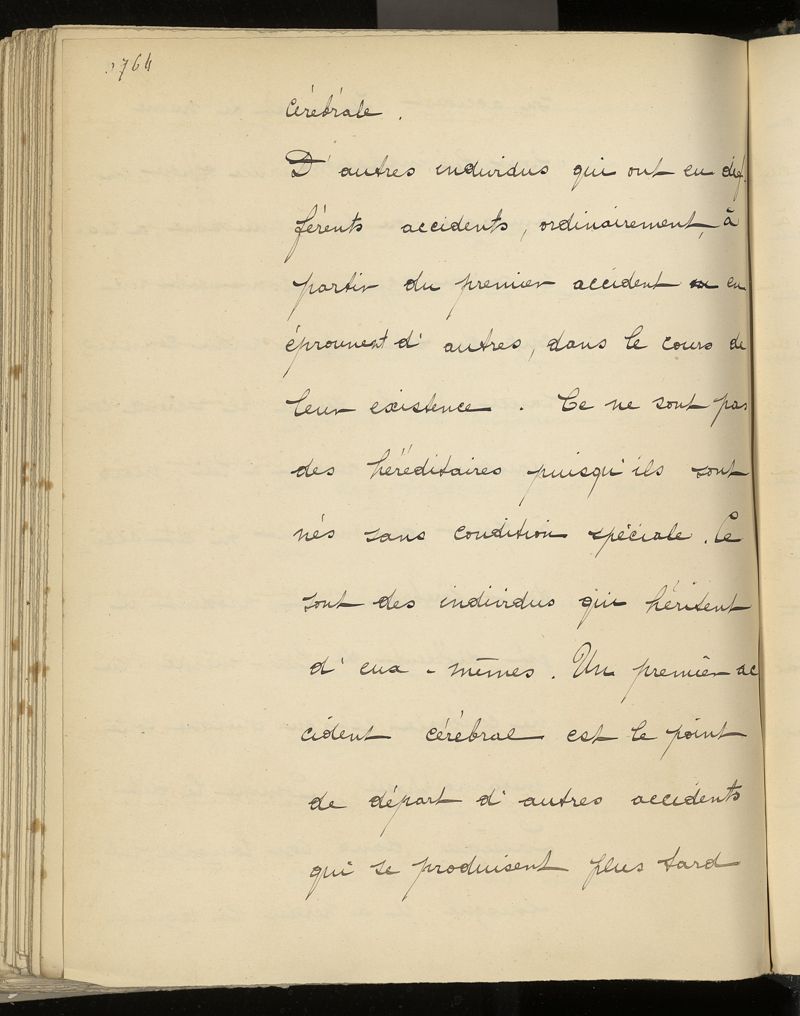 764
cérébrale.
D'autres individus qui ont eu dif-
férents accidents, ordinairement, à
partir du premier accident en
éprouvent d'autres, dans le cours de
leur existence. Ce ne sont pas
des héréditaires puisqu'ils sont
nés sans condition spéciale. Ce
sont des individus qui héritent
d'eux-mêmes. Un premier ac
cident cérébral est le point
de départ d'autres accidents
qui se produisent plus tard